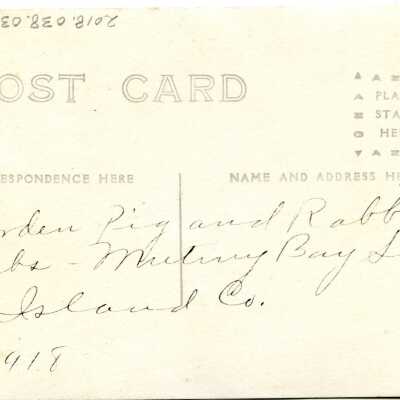 2018.038.03
OST CARD
PLA
STA
HE
ESPONDENCE HERE
NAME AND ADDRESS HE
rden Pig and Rabb
bs - Mutiny Bay
Island Co.
1918